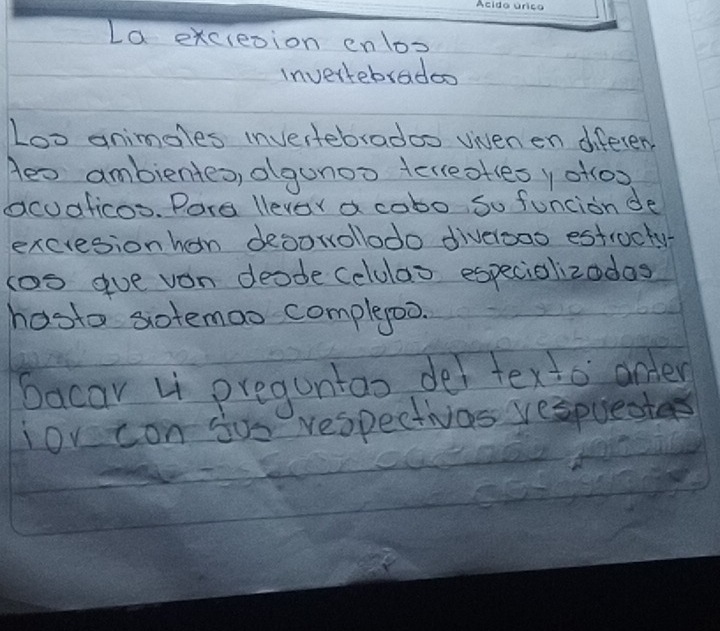 Acido urico
La excresion en los
invertebrados
Los animales invertebrados viven en diferen
tes ambientes, algunos terrestres y otros
acuaticos. Para llevar a cabo su función de
excresion han desarrollado diversas estructu-
ras que van desde celulas especializadas
hasta sistemas complejos.
Sacar 4 preguntas del texto anter
ior con sus respectivas respuestas